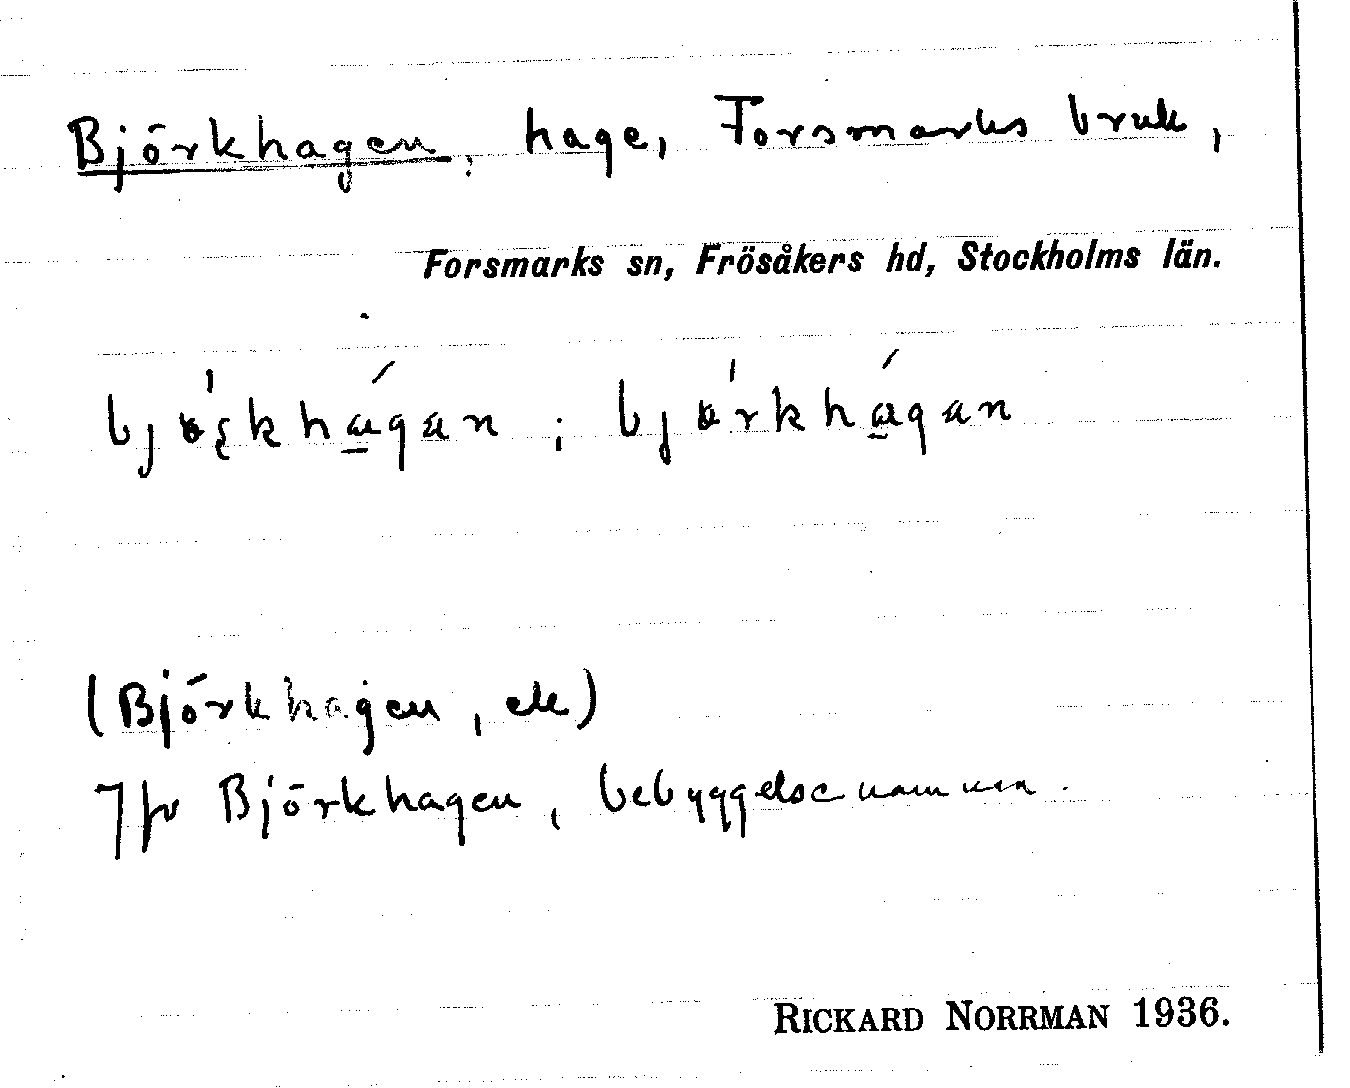 Björkhagen, hage, Forsmarks bruk,
Forsmarks sn, Frösåkers hd, Stockholms län.
bjɵrkhagan ; bjɵrkhagan
(Björkhagen, ek)
Jfr Björkhagen, bebyggelsenamnen.
RICKARD NORRMAN 1936.